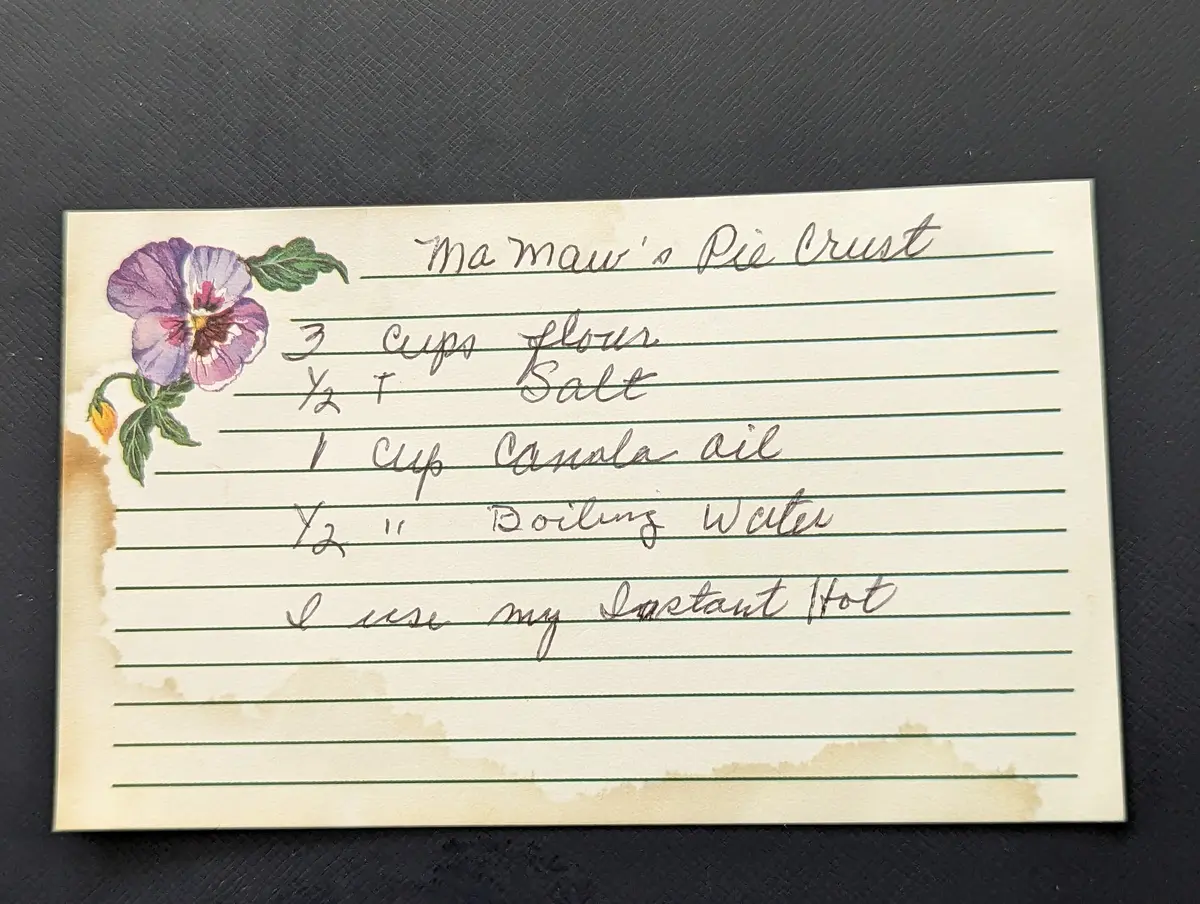 Ma Maw's Pie Crust
3 cups flour
1/2 T Salt
1 cup Canola oil
1/2 " Boiling Water
I use my Instant Hot